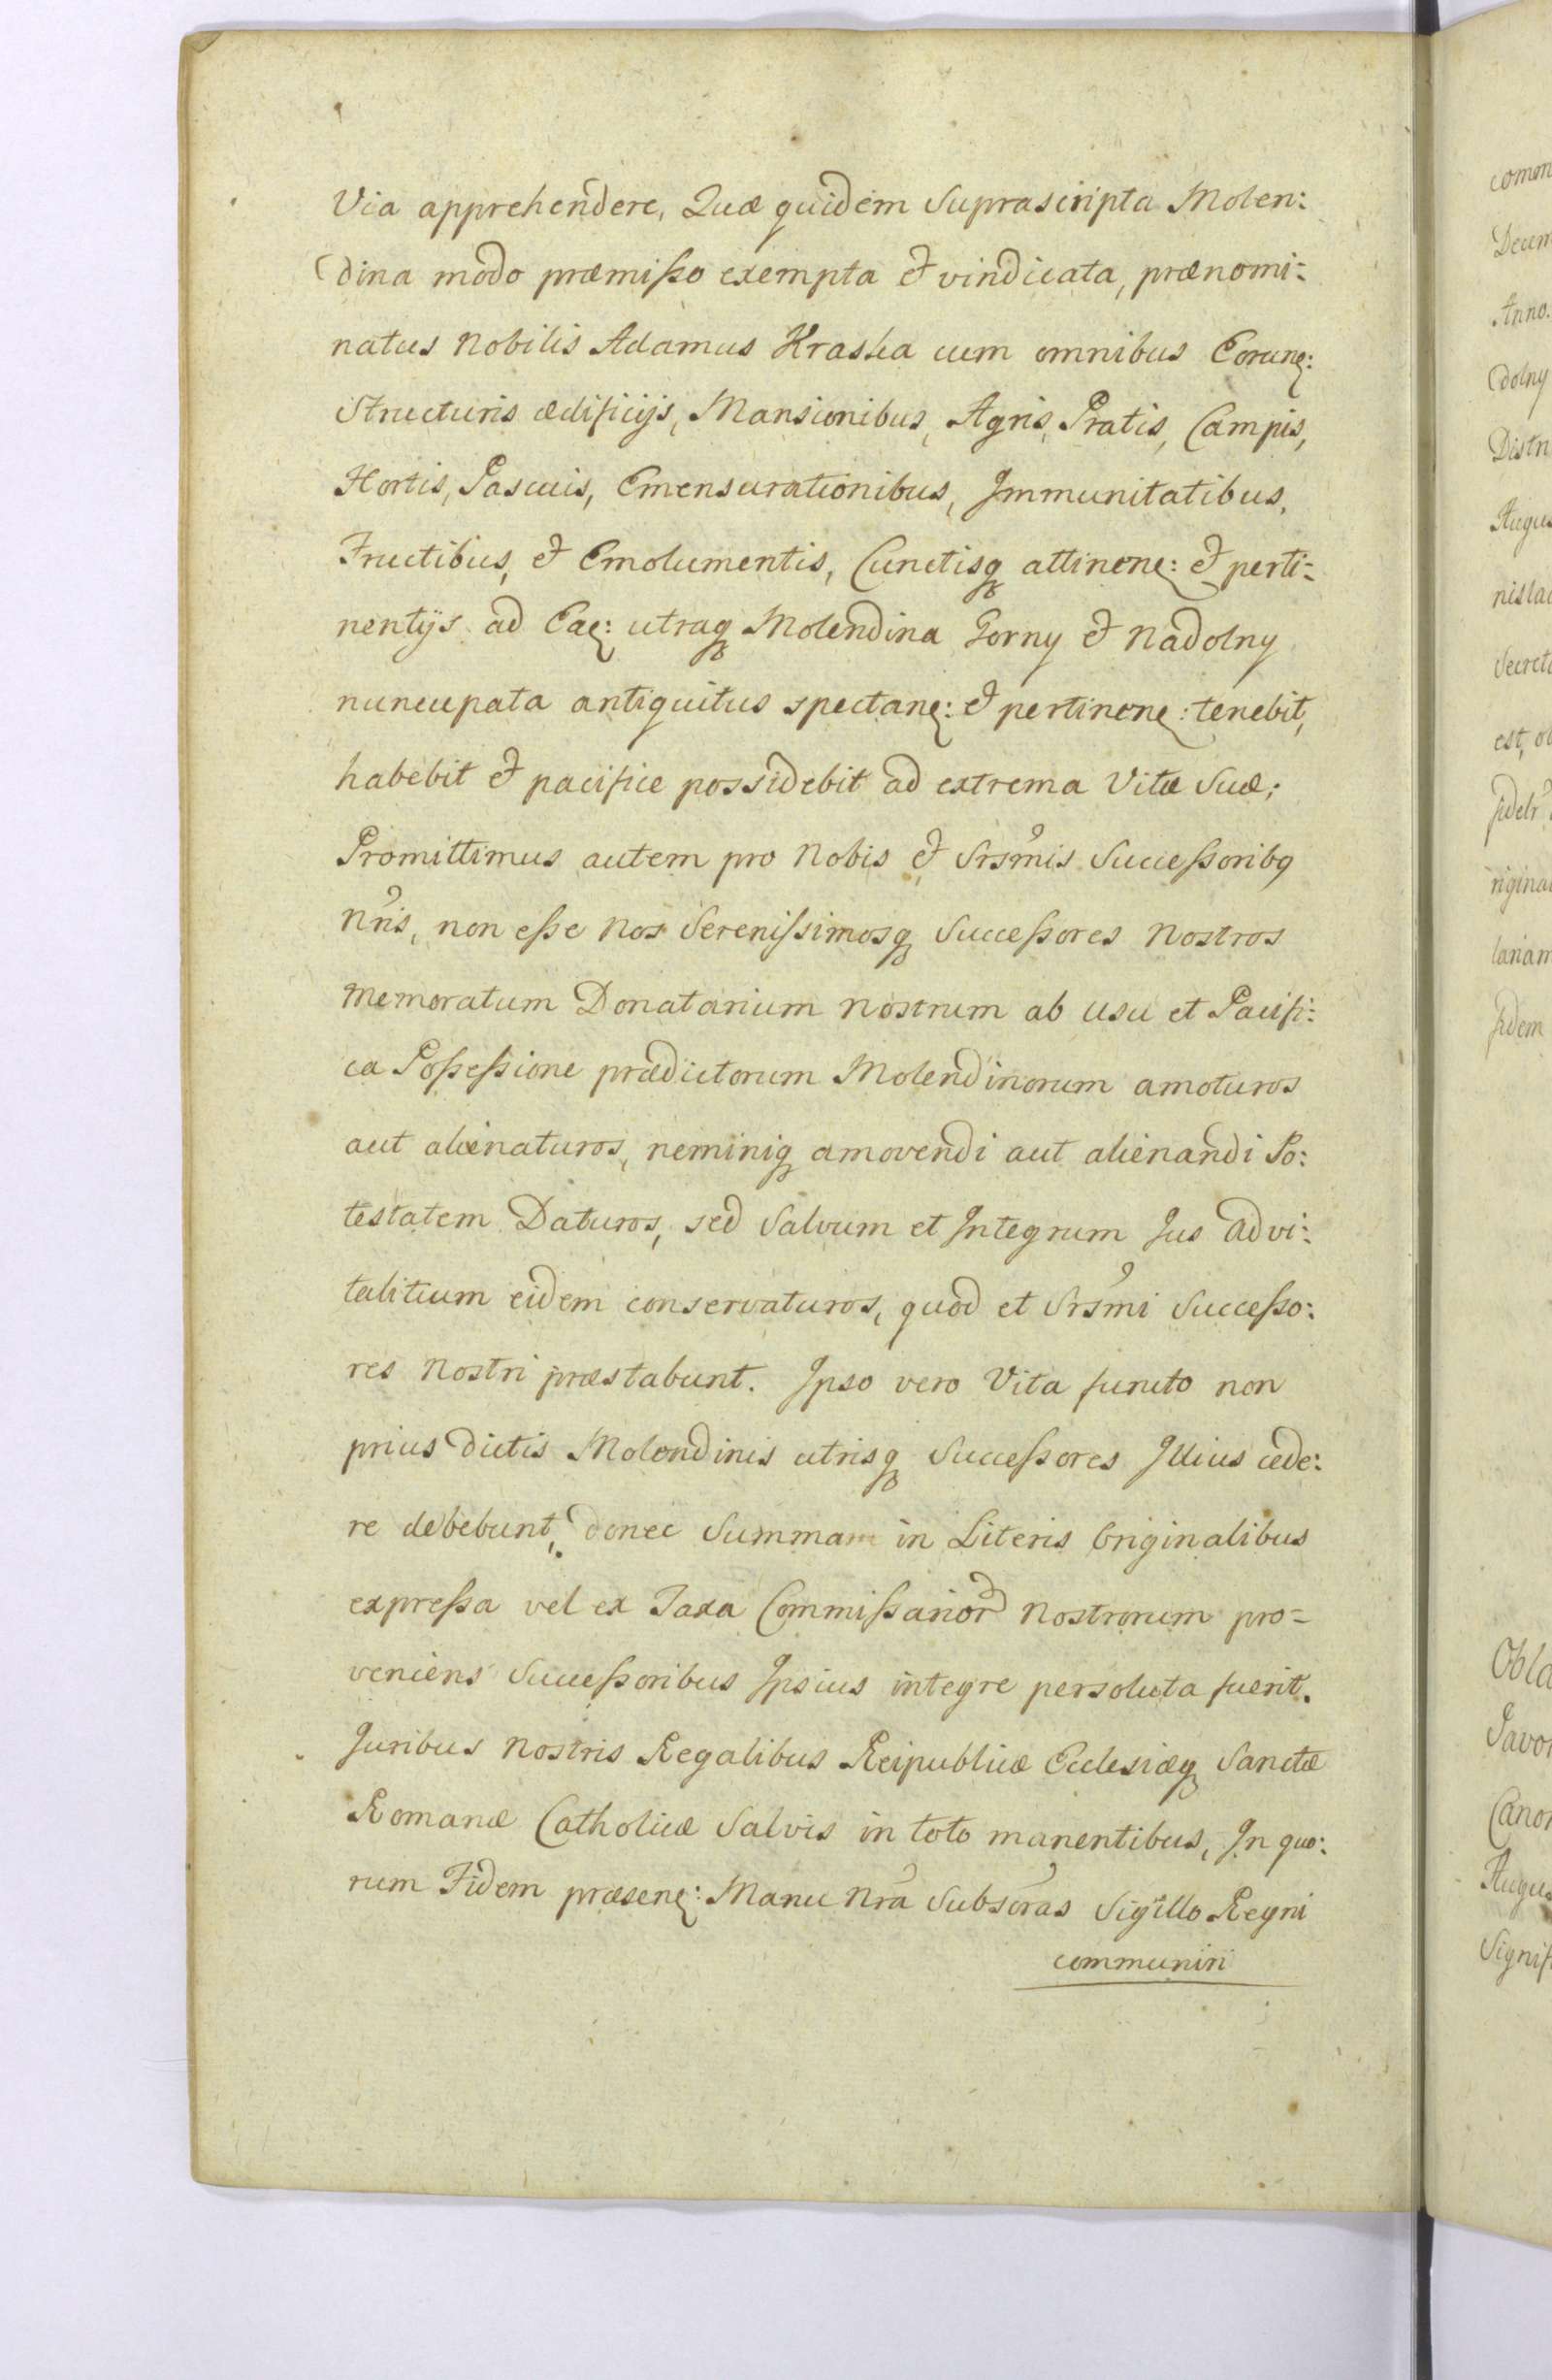 Via apprehendere, Quæ quidem Suprascripta Molen:
dina modo præmißo exempta et vindicata, prænomi=
natus Nobilis Adamus Kraska cum omnibus Eorunꝫ:
Structuris ædificijs, Mansionibus, Agris, Pratis, Campis,
Hortis, Pascuis, Emensurationibus, Immunitatibus,
Fructibus, et Emolumentis, Cunctisqꝫ attinenꝫ: et perti=
nentijs ad Eaꝫ: utraqꝫ Molendina Gorny et Nadolny
nuncupata antiquitus spectanꝫ: et pertinenꝫ: tenebit,
habebit et pacifice possidebit ad extrema Vitæ Suæ;
Promittimus autem pro Nobis et Srsmis Succeßoribq
Nris, non eße Nos Serenißimosqꝫ Succeßores Nostros
Memoratum Donatarium Nostrum ab usu et Pacifi:
ca Poßeßione prædictorum Molendinorum amoturos
aut alienaturos, neminiqꝫ amovendi aut alienandi Po:
testatem Daturos, sed Salvum et Integrum Jus Advi:
talitium eidem conservaturos, quod et Srsmi Succeßo:
res Nostri præstabunt. Ipso vero Vita functo non
prius dictis Molendinis utrisqꝫ Succeßores Illius cede:
re debebunt, donec Summam in Literis Originalibus
expreßa vel ex Taxa Commißarior Nostrorum pro=
veniens Succeßoribus Ipsius integre persoluta fuerit.
Juribus Nostris Regalibus Reipublicæ Ecclesiæqꝫ Sanctæ
Romanæ Catholicæ Salvis in toto manentibus, In quo:
rum Fidem præsenꝫ: Manu Nra Subscras Sigillo Regni
communiri
comm
Decem
Anno.
dolny
Distri
Augus
nisla
Secret
est, ob
fidelr
rigina
lariam
fidem
Obla
Javor
Canon
Augus
Signif